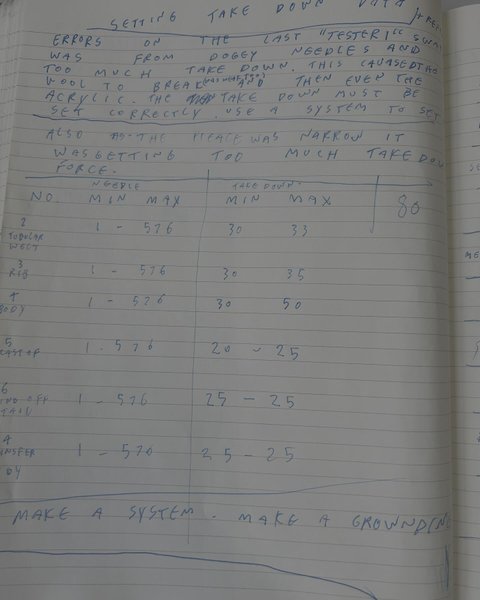 SETTING TAKE DOWN DATA
ERRORS ON THE LAST "TESTER1" SWA
WAS FROM DOGEY NEEDLES AND
TOO MUCH TAKE DOWN. THIS CAUSED THE
WOOL TO BREAK AND THEN EVEN THE
ACRYLIC. THE TAKE DOWN MUST BE
SET CORRECTLY. USE A SYSTEM TO SET
ALSO AS THE PIECE WAS NARROW IT
WAS GETTING TOO MUCH TAKE DOW
FORCE.
NEEDLE TAKE DOWN
NO. MIN MAX MIN MAX 80
2 1 - 576 30 33
TUBULAR
WELT
3 1 - 576 30 35
RIB
4 1 - 576 30 50
BODY
5 1 - 576 20 - 25
CAST OF
6
IND OFF 1 - 576 25 - 25
TAIL
4
NSFER 1 - 576 25 - 25
DY
MAKE A SYSTEM. MAKE A GROWNDING